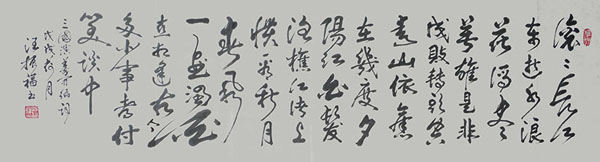 滚〻長江
东逝水浪
花淘尽
英雄是非
成敗转头空
青山依舊
在幾度夕
陽红白髮
渔樵江渚上
惯看秋月
春风
一壶浊酒
喜相逢古今
多少事都付
笑谈中
三國演義开篇词
戊戌月
汪振福书